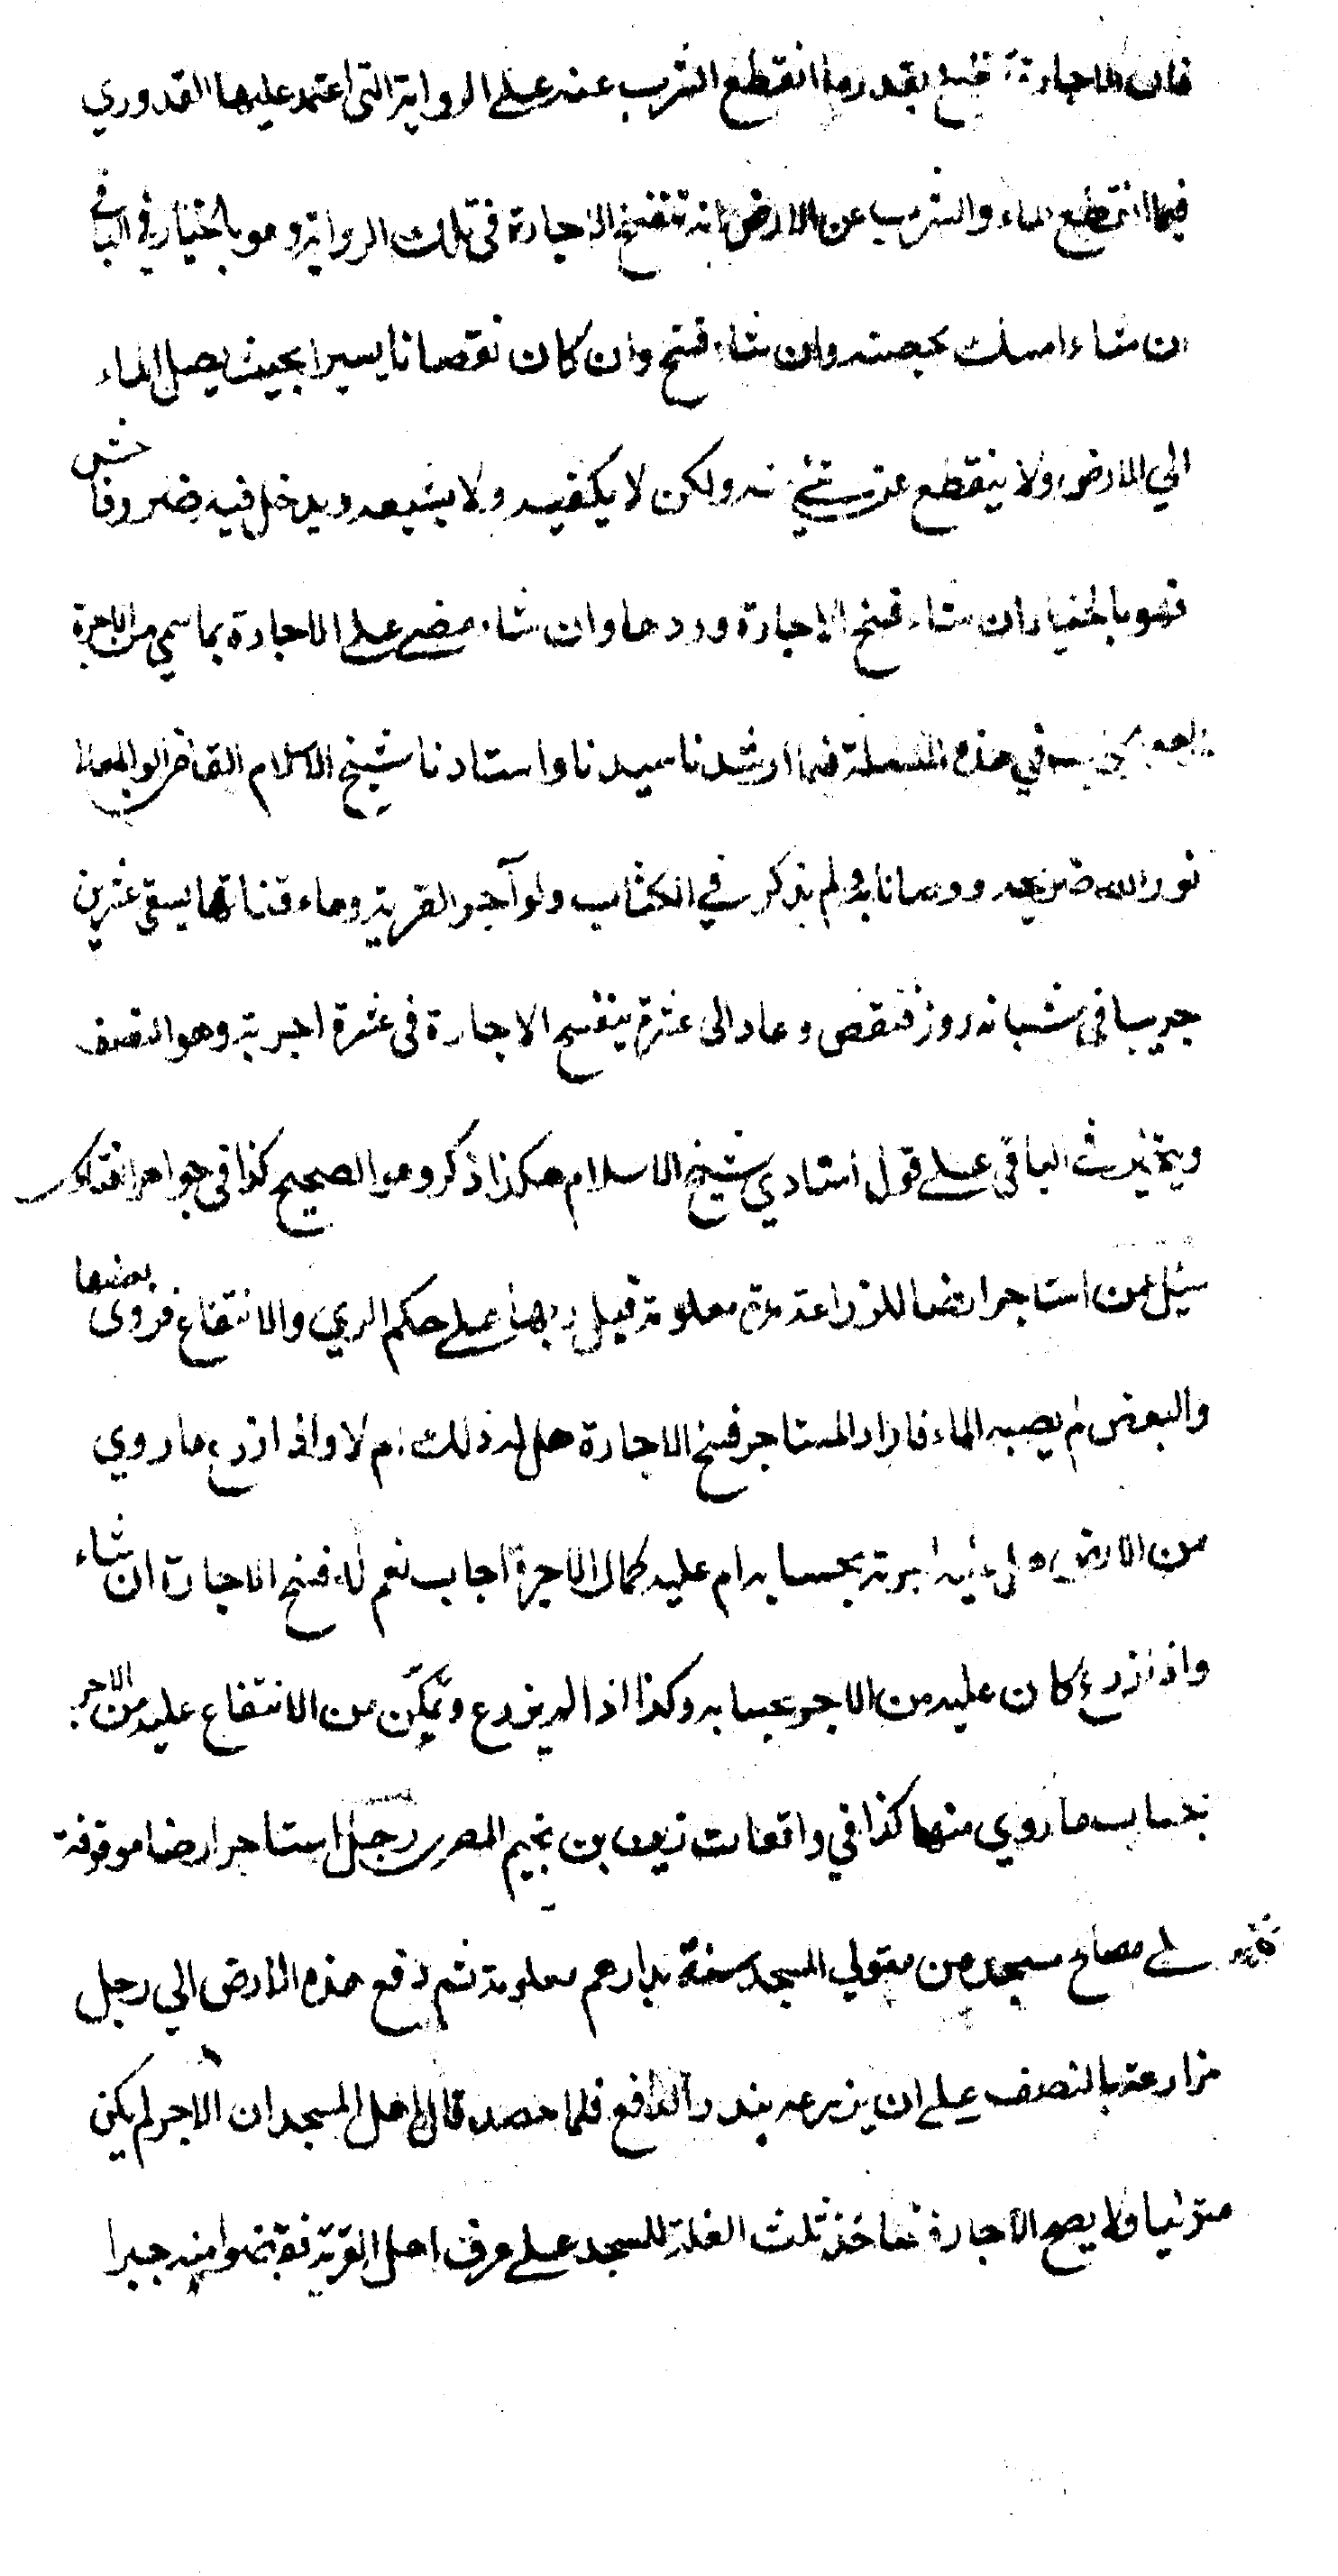 فان الاجارة تفسخ بقدر ما انقطع الشرب عنه على الرواية التي اعتمد عليها القدوري
فيما انقطع الماء والشرب عن الارض انه تنفسخ الاجارة في تلك الرواية وهو بالخيار في الباقي
ان شاء امسك بحصته وان شاء فسخ وان كان نقصانا يسيرا بحيث يصل الماء
الي الارض ولا ينقطع عن شئ منه ولكن لا يكفيه ولا يشبعه ويدخل فيه ضرر فاحش
فهو بالخيار ان شاء فسخ الاجارة وردها وان شاء مضى على الاجارة بما سمي من الاجرة
في هذه المسئلة فيما ارشدنا سيدنا واستادنا شيخ الاسلام القاضي ابو المعالي
نور الله ضريحه ووصانا به ولم يذكر في الكتاب ولو آجر القرية وماء قناتها يسقى عشرين
جريبا في شبانه روز فنقص وعاد الى عشرة ينفسخ الاجارة في عشرة اجربة وهو النصف
ويتخير في الباقي على قول استادي شيخ الاسلام هكذا ذكر وهو الصحيح كذا في جواهر الفتاوى
سئل عمن استاجر ارضا للزراعة مدة معلومة قبل ريها على حكم الري والانتفاع فروى بعضها
والبعض لم يصبه الماء فاراد المستاجر فسخ الاجارة هل له ذلك ام لا واذا ازرع ما روي
من الارض هل عليه اجرته بحسابه ام عليه كمال الاجرة اجاب نعم له فسخ الاجارة ان شاء
واذا زرع كان عليه من الاجر بحسابه وكذا اذا لم يزرع وتمكّن من الانتفاع عليه من الاجر
بحساب ما روي منها كذا في واقعات زين بن نجيم المصري رجل استاجر ارضا موقوفة
على مصالح مسجد من متولي المسجد سنة بدارهم معلومة ثم دفع هذه الارض الي رجل
مزارعة بالنصف على ان يزرعه ببذر الدافع فلما حصد قال اهل المسجد ان الآجر لم يكن
متوليا ولا يصح الاجارة فناخذ ثلث الغلة للمسجد على عرف اهل القرية فقبضوا منه جبرا